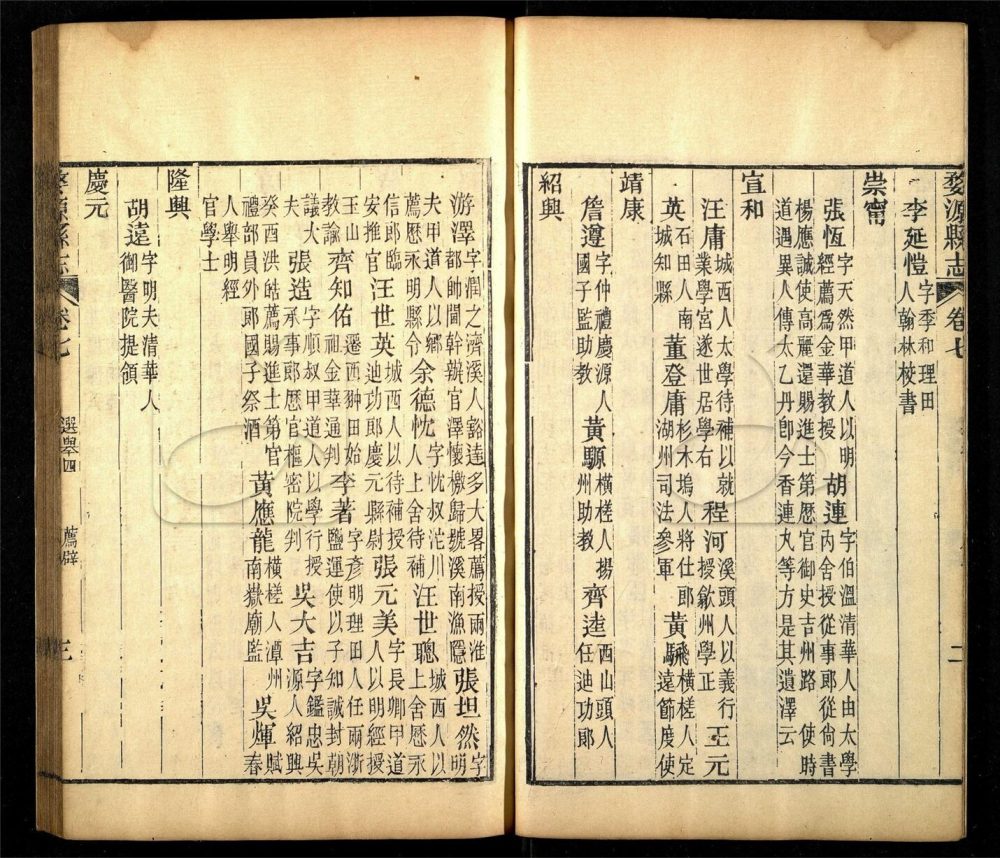 婺源縣志 卷七 二
李延愷 字季和理田人翰林校書
崇甯
張恆 字天然甲道人以明經薦爲金華教授 胡連 字伯溫清華人由太學內舍授從事郎從尙書
楊應誠使高麗還賜進士第歷官御史吉州路 使時道遇異人傳太乙丹卽今香連丸等方是其遺澤云
宣和
汪庸 城西人太學待補以就業學宮遂世居學右 程河 溪頭人以義行授歙州學正 王元
英 石田人南城知縣 董登庸 杉木塢人將仕郎湖州司法參軍 黃騛 橫槎人定遠節度使
靖康
詹遵 字仲禮慶源人國子監助教 黃 橫槎人揚州助教 齊逵 西山頭人任迪功郎
紹興
游澤 字潤之濟溪人豁達多大畧薦授兩淮都帥閫幹辦官澤懷檄歸號溪南漁隱 張坦然 字明
夫甲道人以鄉薦歷永明縣令 余德忱 字忱叔沱川人上舍待補 汪世聰 城西人以上舍歷永
信郎臨安推官 汪世英 城西人以待補授迪功郎慶元縣尉 張元美 字長卿甲道人以明經授
玉山教諭 齊知佑 遷西翀田始祖金華通判 李著 字彥明理田人任兩浙鹽運使以子知誠封朝
議大夫 張造 字順叔甲道人以學行授承事郎歷官樞密院判 吳大吉 字鑑忠吳源人紹興
癸酉洪皓薦賜進士第官禮部員外郎國子祭酒 黃應龍 橫槎人潭州南嶽廟監 吳輝 賦春
人舉明經官學士
隆興
胡遠 字明夫清華人御醫院提領
慶元
婺源縣志 卷七 選舉四 薦辟 三